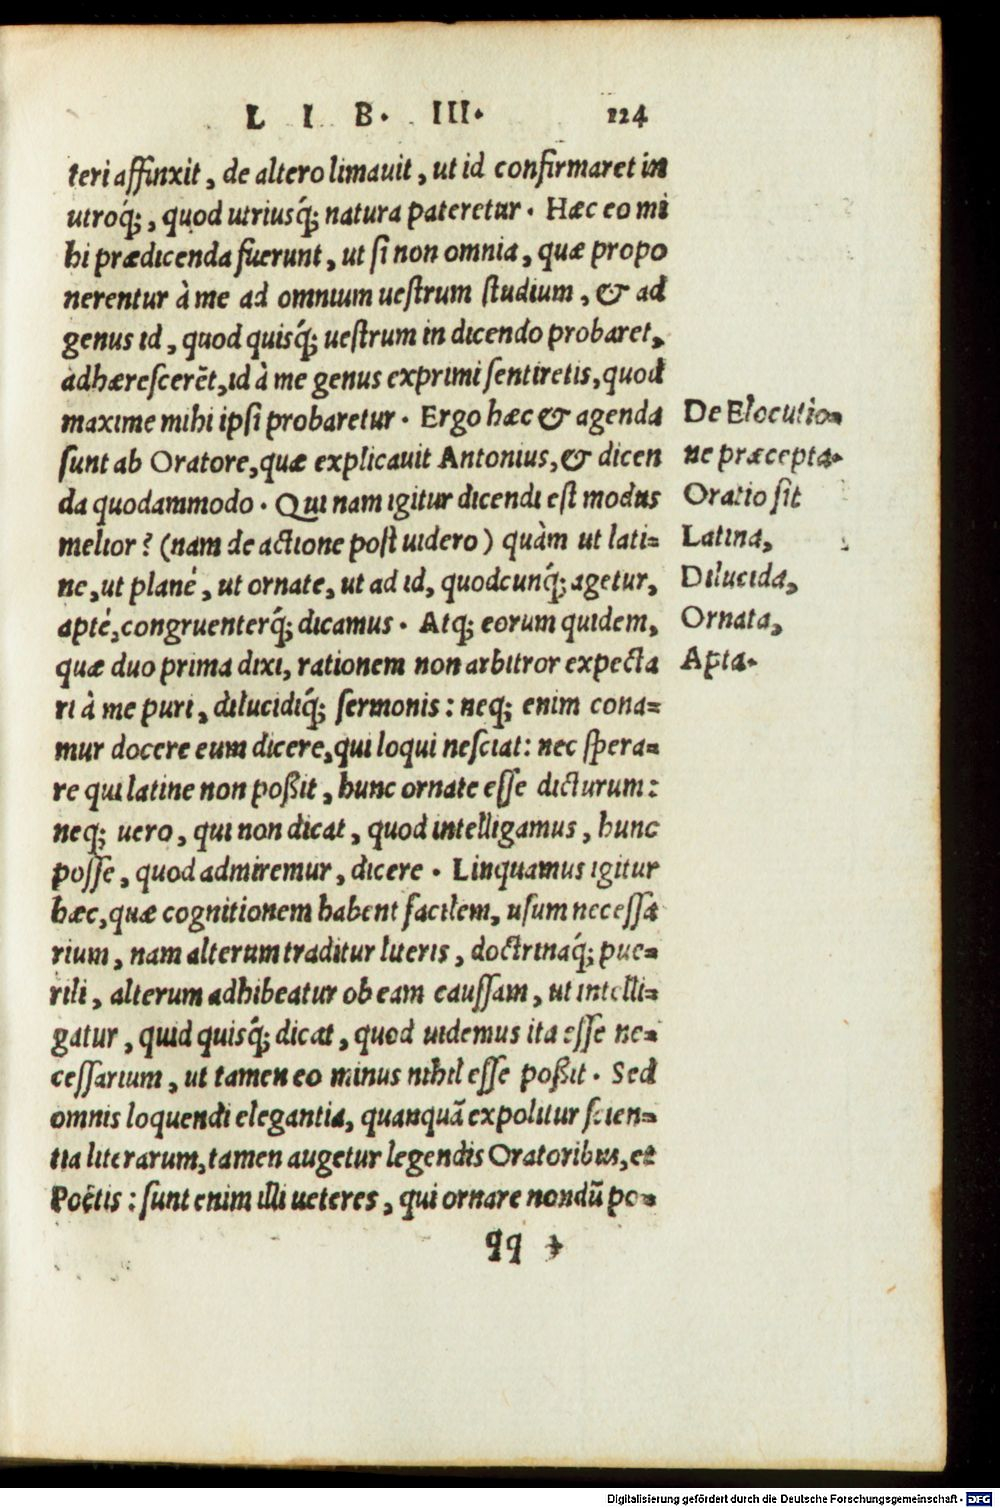 L I B. III. 124
teri affinxit, de altero limauit, ut id confirmaret in
utroq́;, quod utriusq́; natura pateretur. Hæc eo mi
hi prædicenda fuerunt, ut si non omnia, quæ propo
nerentur à me ad omnium uestrum studium, & ad
genus id, quod quisq́; uestrum in dicendo probaret,
adhærescerẽt, id à me genus exprimi sentiretis, quod
maxime mihi ipsi probaretur. Ergo hæc & agenda
sunt ab Oratore, quæ explicauit Antonius, & dicen
da quodammodo. Qui nam igitur dicendi est modus
melior? (nam de actione post uidero) quàm ut lati=
ne, ut plané, ut ornate, ut ad id, quodcunq́; agetur,
apté, congruenterq́; dicamus. Atq; eorum quidem,
quæ duo prima dixi, rationem non arbitror expecta
ri à me puri, dilucidiq́; sermonis: neq; enim cona=
mur docere eum dicere, qui loqui nesciat: nec spera=
re qui latine non poßit, hunc ornate esse dicturum:
neq; uero, qui non dicat, quod intelligamus, hunc
posse, quod admiremur, dicere. Linquamus igitur
hæc, quæ cognitionem habent facilem, usum necessa
rium, nam alterum traditur literis, doctrinaq́; pue=
rili, alterum adhibeatur ob eam caussam, ut intelli=
gatur, quid quisq́; dicat, quod uidemus ita esse ne=
cessarium, ut tamen eo minus nihil esse poßit. Sed
omnis loquendi elegantia, quanquã expolitur scien=
tia literarum, tamen augetur legendis Oratoribus, et
Poëtis: sunt enim illi ueteres, qui ornare nondũ po=
De Elocutio=
ne præcepta.
Oratio sit
Latina,
Dilucida,
Ornata,
Apta.
qq
Digitalisierung gefördert durch die Deutsche Forschungsgemeinschaft - DFG